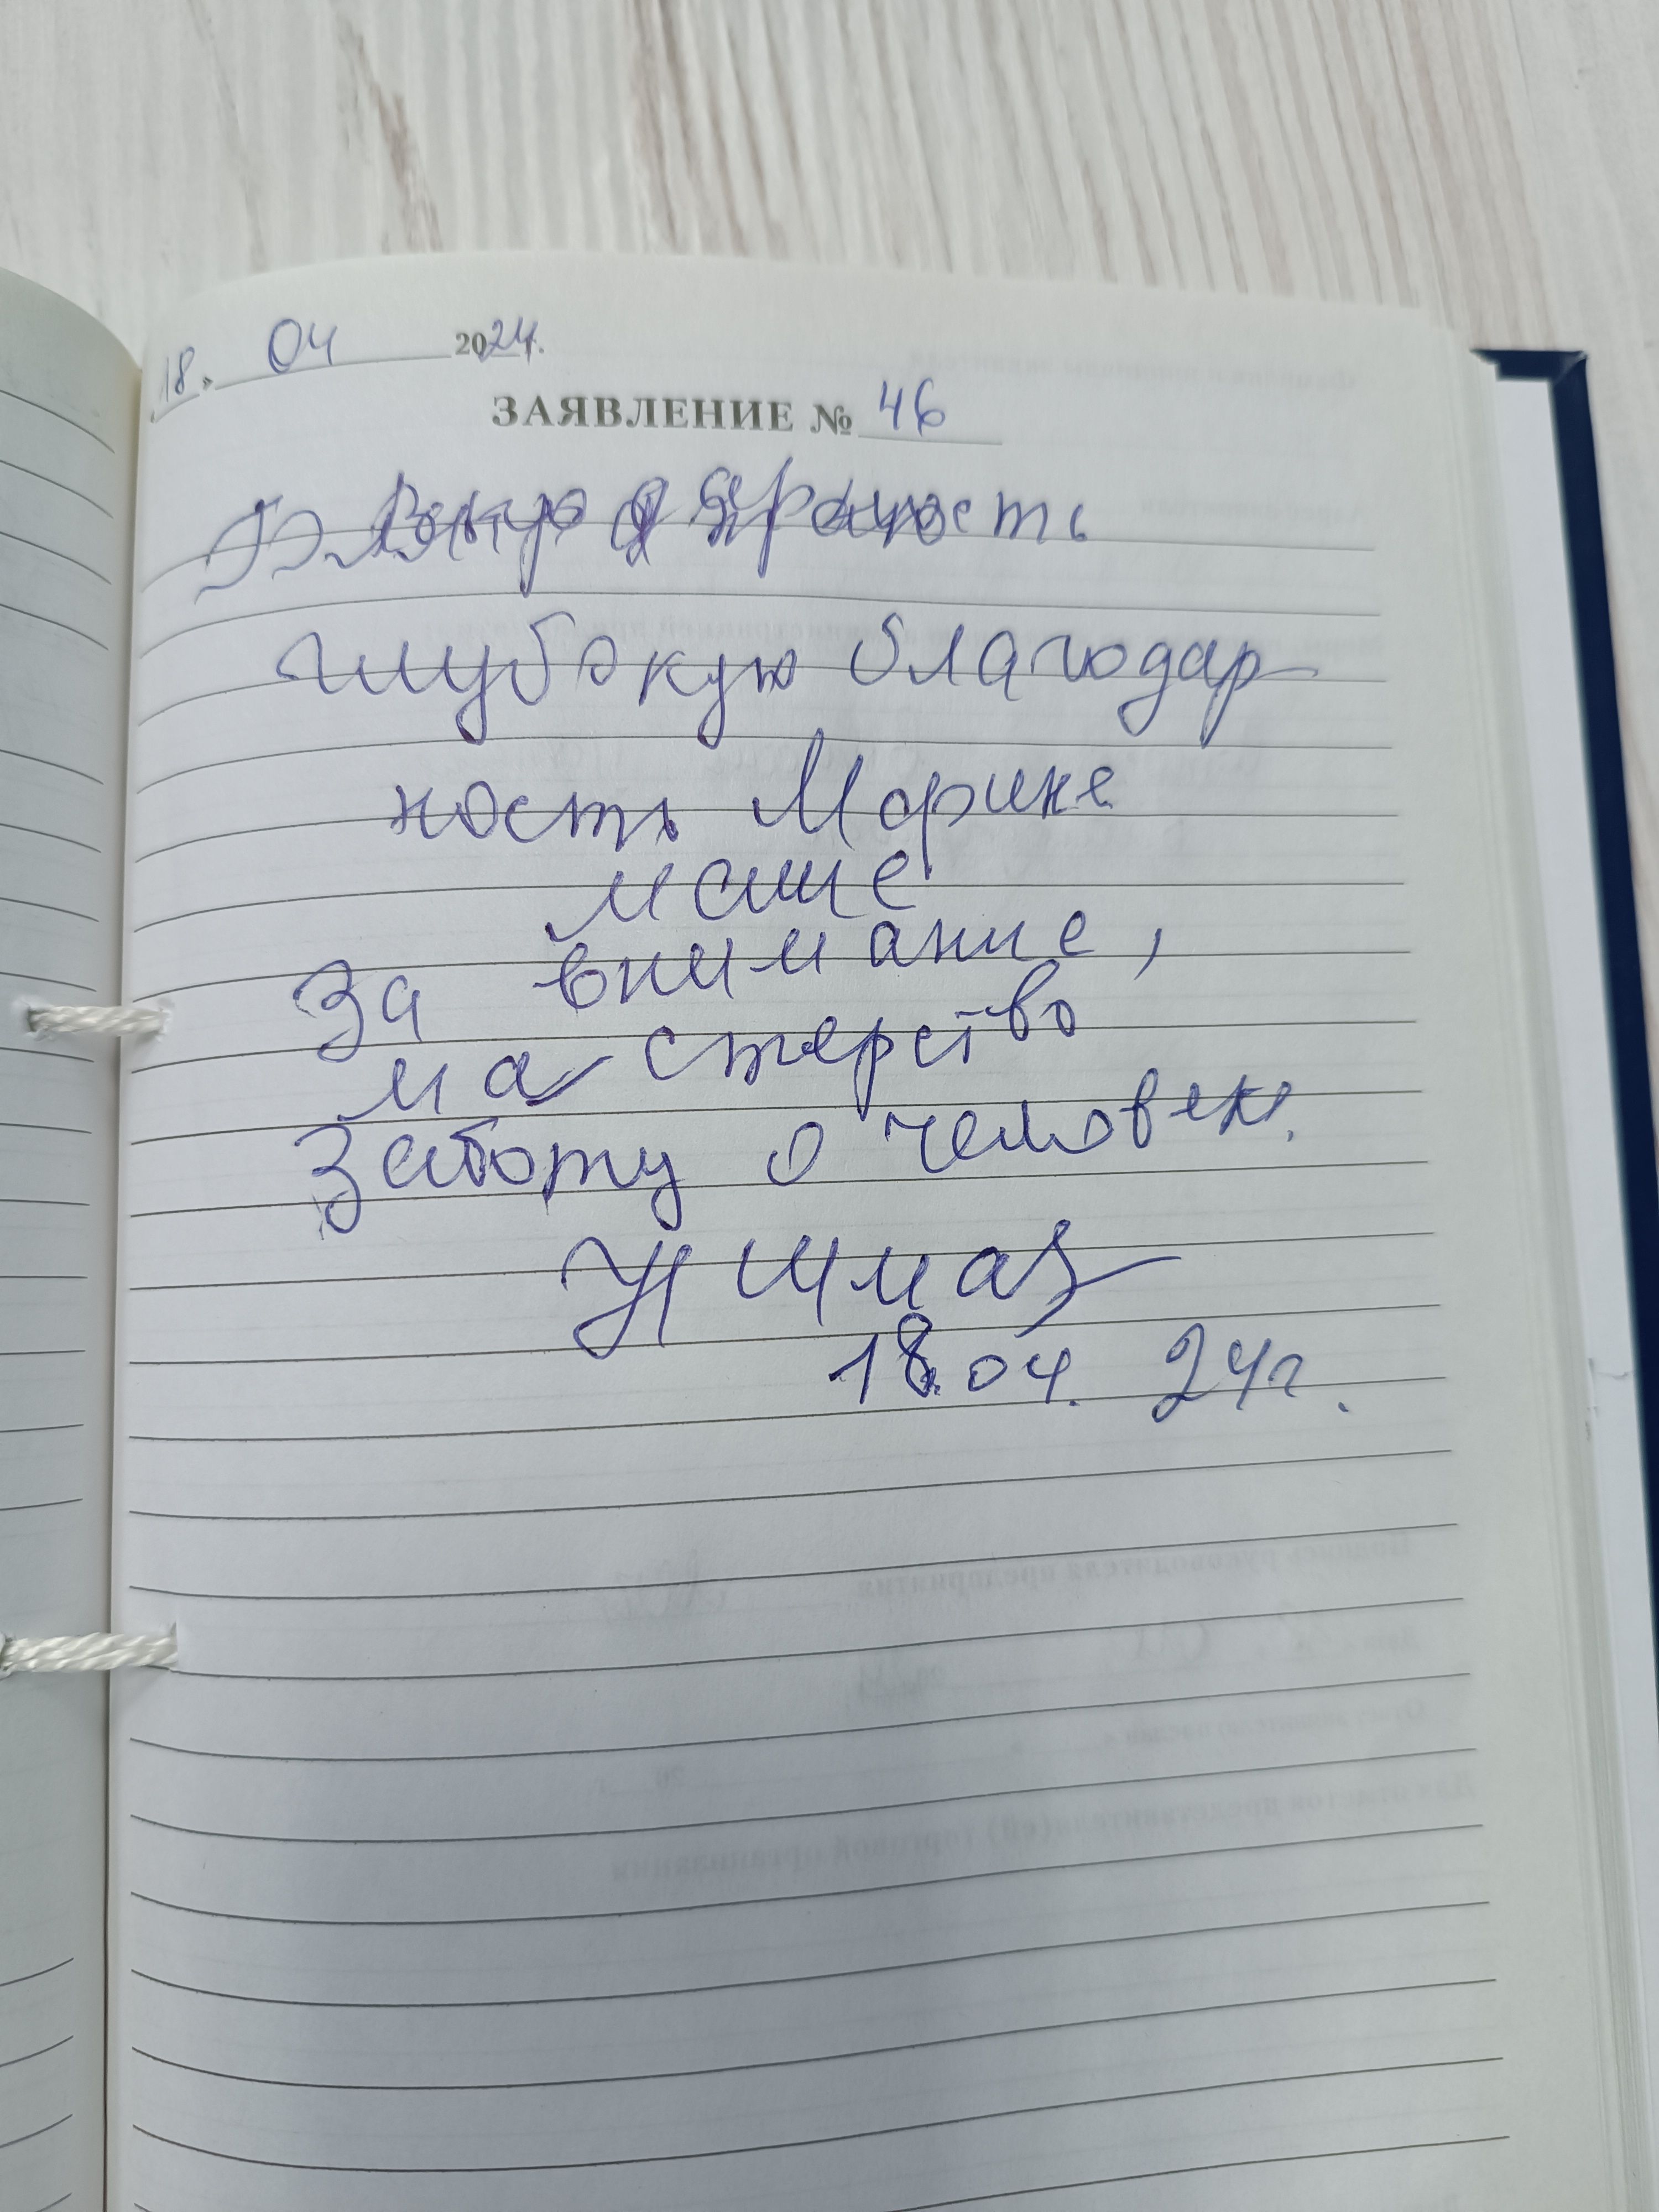 18. 04 2024г.
ЗАЯВЛЕНИЕ № 46
глубокую благодар
ность Марине
маше
За внимание,
мастерство
Заботу о человеке.
18.04.24г.